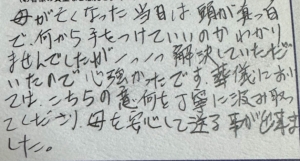 母が亡くなった当日は頭が真っ白
で何から手をつけていいのかわかり
ませんでしたが一つ一つ解決していただ
いたので心強かったです。葬儀におい
ては、こちらの意向を丁寧に汲み取っ
てくださり、母を安心して送る事が出来ま
した。